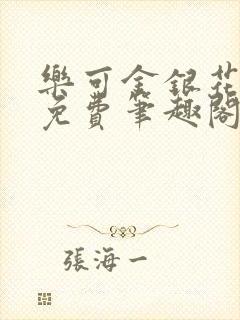 樂可金銀花
免費筆趣閣
張海一